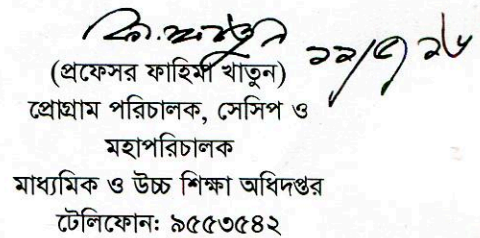 (প্রফেসর ফাহিমা খাতুন)
প্রোগ্রাম পরিচালক, সেসিপ ও
মহাপরিচালক
মাধ্যমিক ও উচ্চ শিক্ষা অধিদপ্তর
টেলিফোন: ৯৫৫৩৫৪২